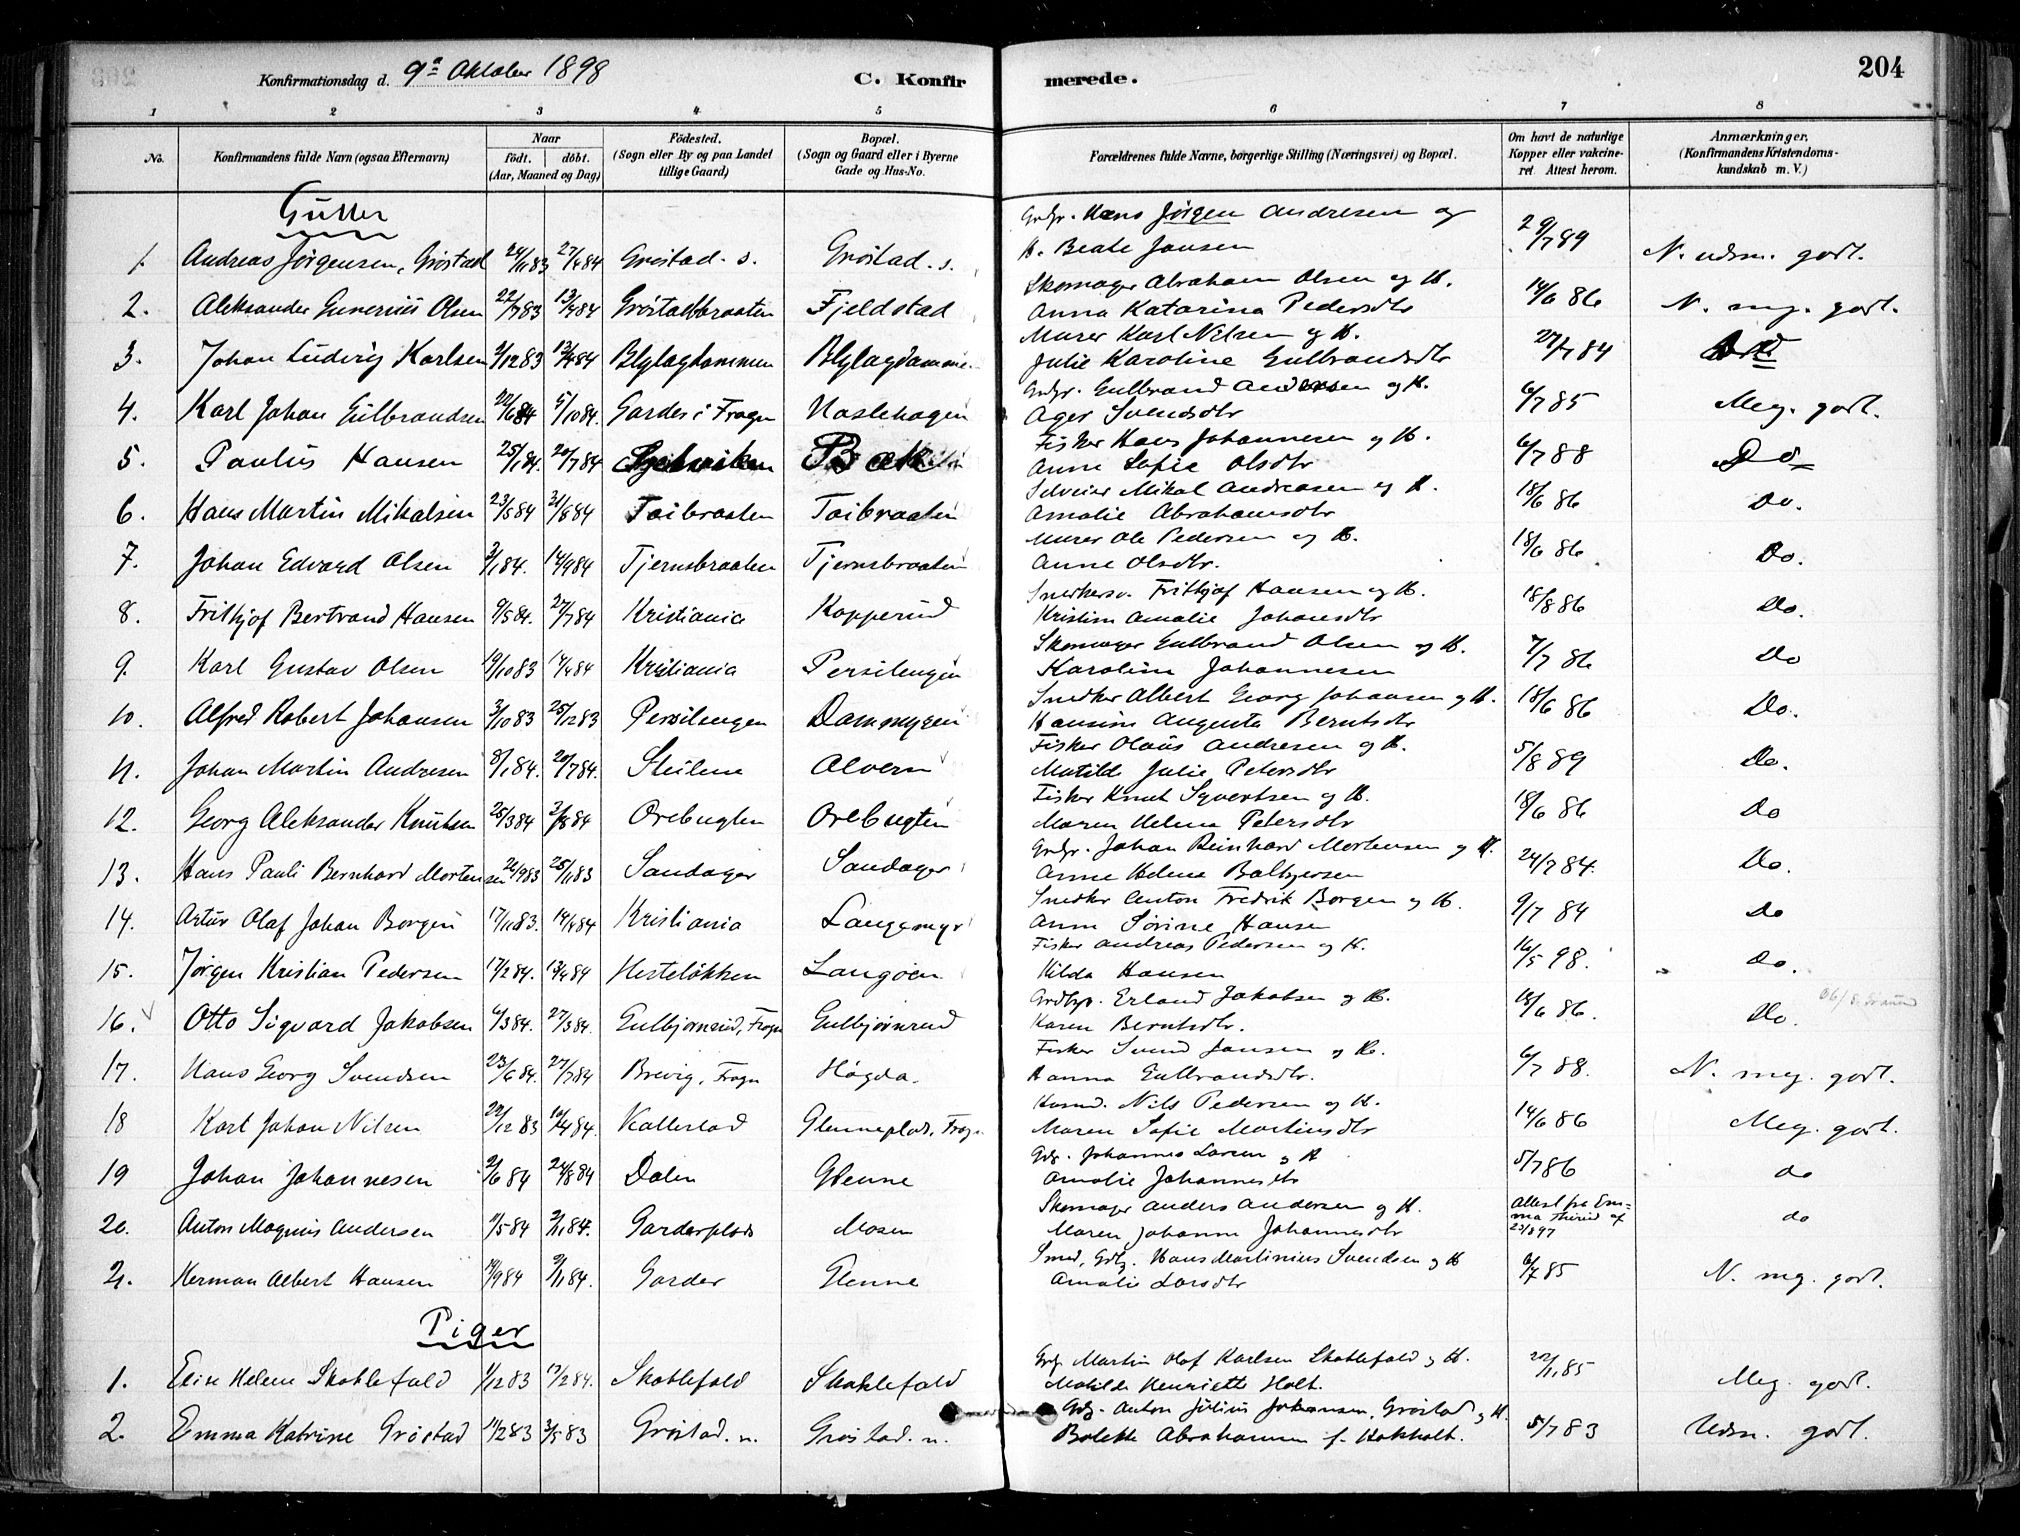 Konfirmationsdag d. 9de Oktober 1898
C. Konfirmerede.
204
1 2 3 4 5 6 7 8
No. Konfirmandens fulde Navn (ogsaa Efternavn) Naar födt. döbt. (Aar, Maaned og Dag) Födested. (Sogn eller By og paa Landet tillige Gaard) Bopæl. (Sogn og Gaard eller i Byerne Gade og Hus-No. Forældrenes fulde Navne, borgerlige Stilling (Næringsvei) og Bopæl. Om havt de naturlige Kopper eller vakcineret. Attest herom. Anmærkninger. (Konfirmandens Kristendomskundskab m. V.)
Gutter
1. Andreas Jørgensen, Grøstad 24/11 83 27/4 84 Grøstad. s. Grøstad. s. Grdbr. Hans Jörgen Andresen og H. Beate Jansen 29/7 89 N. udm. godt.
2. Aleksander Gunerius Olsen 22/7 83 13/4 84 Grøstadbraaten Fjeldstad Skomager Abraham Olsen og H. Anna Katarina Pedersdtr 14/6 86 N. mg. godt.
3. Johan Ludvig Karlsen /12 83 13/4 84 Blylagdammen Blylagdammen Murer Karl Nilsen og H. Julie Karoline Gulbrandsdtr 27/7 84
4. Karl Johan Gulbrandsen 22/6 84 5/10 84. Garder i Frogn Haslehagen Grdbr. Gulbrand Andersen og H. Ager Svendsdtr 6/7 85 Meg. godt.
5. Paulus Hansen 25/1 84. 20/7 84 Bæk Fisker Hans Johannesen og H. Anne Sofie Olsdtr 6/7 88 Do
6. Hans Martin Mikalsen 23/5 84 31/8 84 Toibraaten Toibraaten Selveier Mikal Andreasen og H. Amalie Abrahamsdtr 18/6 86 Do.
7. Johan Edvard Olsen 3/1 84. 14/9 84 Tjernsbraaten Tjernsbraaten Murer Ole Pedersen og H. Anne Olsdtr. 18/6 86 Do.
8. Frithjof Bertrand Hansen 9/5 84. 27/7 84 Kristiania Kopperud Snedkersv. Frithjof Hansen og H. Kristine Amalie Johansdtr 18/8 86 Do.
9. Karl Gustav Olsen 19/10 83 14/4 84 Kristiania Persilengen Skomager Gulbrand Olsen og H. Karoline Johannesen 7/7 86 Do
10. Alfred Robert Johansen 3/10 83 25/12 83 Persilengen Dammyren Snedker Albert Georg Johansen og H. Hansine Augusta Berntsdtr 18/6 86 Do.
11. Johan Martin Andresen 8/1 84. 20/7 84. Steilene Alvern Fisker Olaus Andresen og H. Matilde Julie Petersdtr 5/8 89 Do.
12. Georg Aleksander Knutsen 25/3 84 3/8 84 Orebugten Orebugten Fisker Knut Syvertsen og H. Maren Helene Petersdtr 18/6 86 Do
13. Hans Pauli Bernhard Mortensen 24/9 83 25/11 83 Sandager Sandager Grdbr. Johan Reinhard Mortensen og H. Anne Helene Balbjersen 24/7 84. Do.
14. Artur Olaf Johan Borgen 17/11 83. 14/4 84 Kristiania Langemyr Snedker Anton Fredrik Borgen og H. Anne Sörine Hansen 9/7 84 Do
15. Jørgen Kristian Pedersen 17/2 84. 13/4 84 Hesteløkken Langøen Fisker Andreas Pedersen og H. Hilda Hansen 16/5 98. Do.
16. Otto Sigvard Jakobsen 6/3 84. 27/3 84. Gulbjørnrud, Frogn Gulbjørnrud Grdbr. Erland Jakobsen og H. Karen Berntsdtr. 18/6 86. Do.
17. Hans Georg Svendsen 23/6 84. 27/7 84 Brevig, Frogn Høgda. Fisker Svend Jansen og H. Hanna Gulbrandsdtr. 6/7 88. N. meg. godt.
18 Karl Johan Nilsen 22/12 83 10/4 84. Kallerstad Glenneplads, Frogn Husmd. Nils Pedersen og H. Maren Sofie Martinsdtr 14/6 86 Meg. godt.
19 Johan Johannesen 2/6 84 24/8 84 Dalen Glenne Gdbr. Johannes Larsen og H Amalie Johannesdtr 5/7 86 do
20. Anton Magnus Andersen /5 84 2/11 84. Garderplads Mosen Skomager Anders Andersen og H. Maren Johanne Johannesdtr Attest fra Emma Thirud af 23/8 97 do
21. Herman Albert Hansen /9 84 9/11 84. Garder Glenne Smed, Gdbr. Hans Martinius Svendsen og H Amalie Larsdtr 6/7 85 N. mg. godt.
Piger
1. Elise Helene Skoklefald 1/12 83 17/2 84. Skoklefald Skoklefald Gdbr. Martin Olaf Karlsen Skoklefald og H. Matilde Henriette Holt. 22/1 85 Meg. godt.
2. Emma Katrine Grøstad 11/2 83 3/5 83 Grøstad. n. Grøstad. n. Gdbr. Anton Julius Johansen, Grøstad og H. Bolette Abrahamsen f. Hokholt. 5/7 83 Udm. godt.